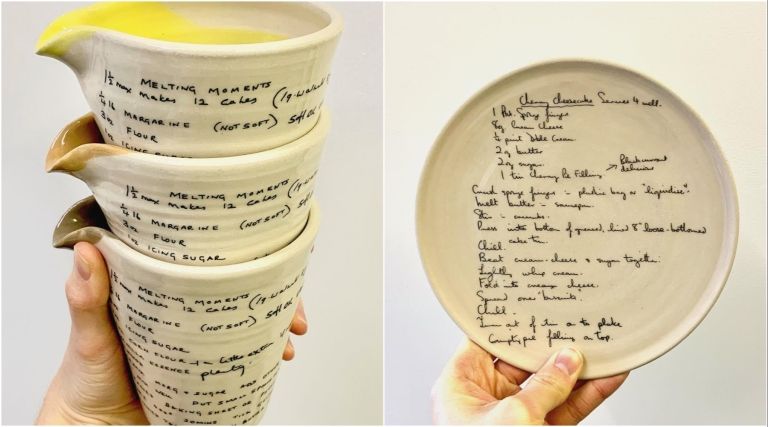 1½ MELTING MOMENTS
max makes 12 Cakes
¼ lb MARGARINE (NOT SOFT)
3oz FLOUR
1½ MELTING MOMENTS
max makes 12 Cakes
¼ lb MARGARINE (NOT SOFT)
3oz FLOUR
1oz ICING SUGAR
1½ MELTING MOMENTS
max makes 12 Cakes
¼ lb MARGARINE (NOT SOFT)
FLOUR
ICING SUGAR
CORN FLOUR + a little extra
ESSENCE plenty
MARG + SUGAR ADD
PUT SMALL
BAKING SHEET OR
Cherry Cheesecake Serves 4 well.
1 Pkt. Sponge fingers
8oz Cream Cheese
¼ pint Double Cream
2oz butter
2oz sugar
1 tin Cherry Pie Filling → Blackcurrant delicious
Crush sponge fingers - plastic bag or "liquidise".
Melt butter - saucepan.
Stir - crumbs.
Press into bottom of greased, lined 8" loose-bottomed
cake tin.
Chill.
Beat cream-cheese & sugar together.
Lightly whip cream.
Fold into cream cheese.
Spread over biscuits.
Chill.
Turn out of tin on to plate
Empty pie filling on top.